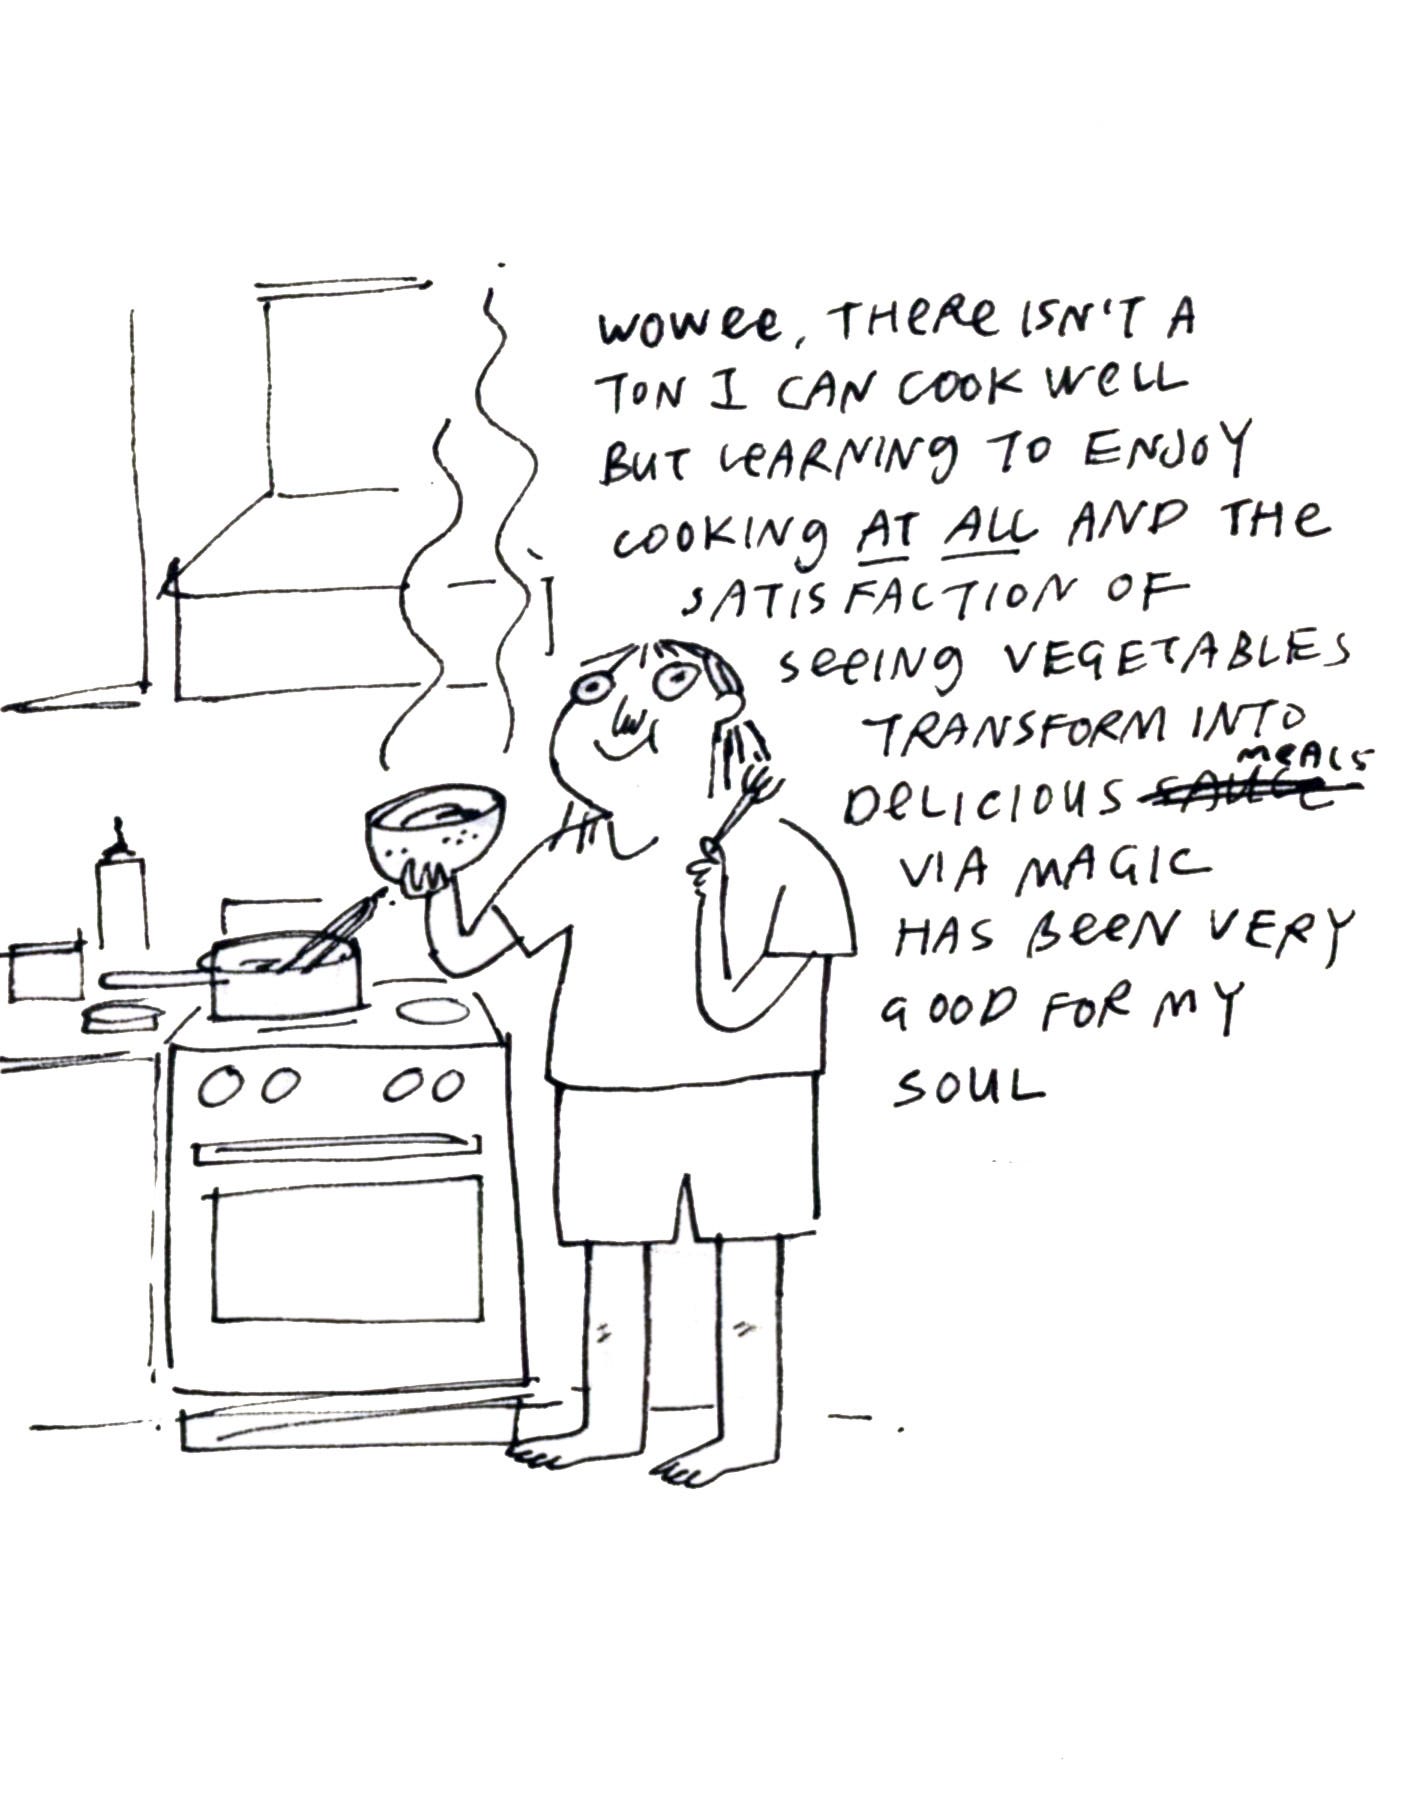 WOWEE, THERE ISN'T A
TON I CAN COOK WELL
BUT LEARNING TO ENJOY
COOKING AT ALL AND THE
SATISFACTION OF
SEEING VEGETABLES
TRANSFORM INTO
DELICIOUS SAUCE MEALS
VIA MAGIC
HAS BEEN VERY
GOOD FOR MY
SOUL